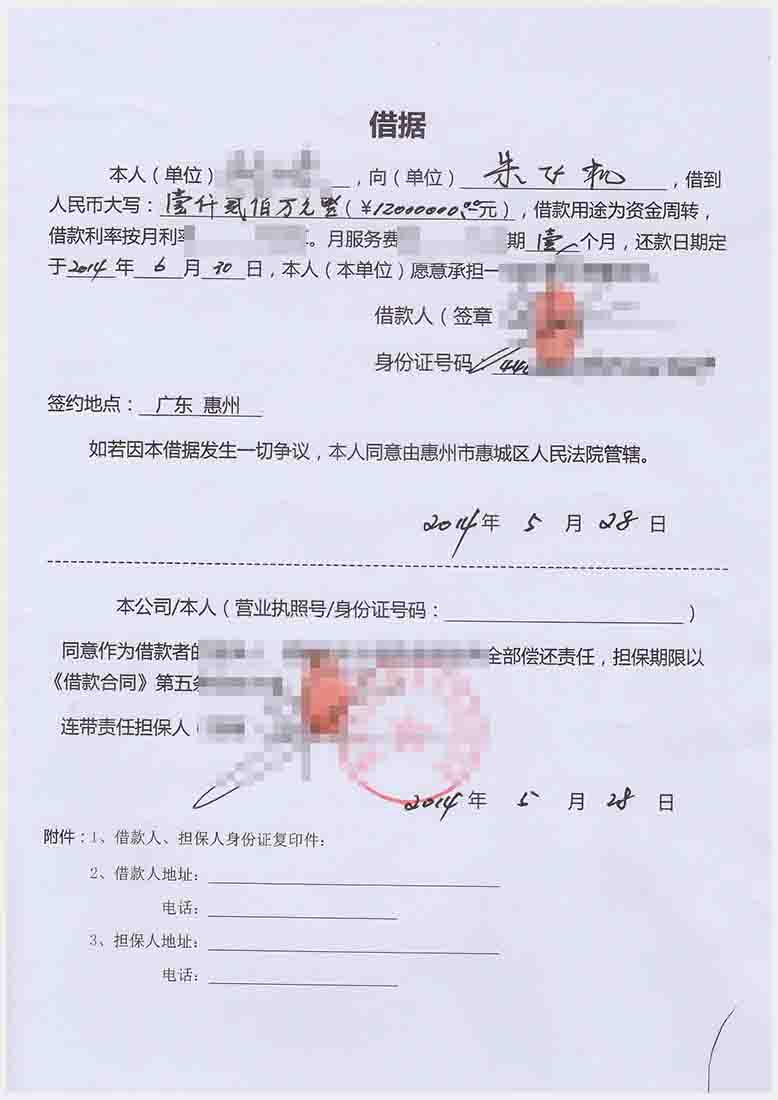 借据
本人（单位），向（单位）朱飞机，借到
人民币大写：壹仟贰佰万元整（¥12000000.00元），借款用途为资金周转，
借款利率按月利率。月服务费期壹个月，还款日期定
于2014年6月30日，本人（本单位）愿意承担一
借款人（签章
身份证号码：44
签约地点：广东 惠州
如若因本借据发生一切争议，本人同意由惠州市惠城区人民法院管辖。
2014年 5 月 28 日
本公司/本人（营业执照号/身份证号码：）
同意作为借款者的全部偿还责任，担保期限以
《借款合同》第五条
连带责任担保人（
2014年 5 月 28 日
附件：1、借款人、担保人身份证复印件：
2、借款人地址：
电话：
3、担保人地址：
电话：